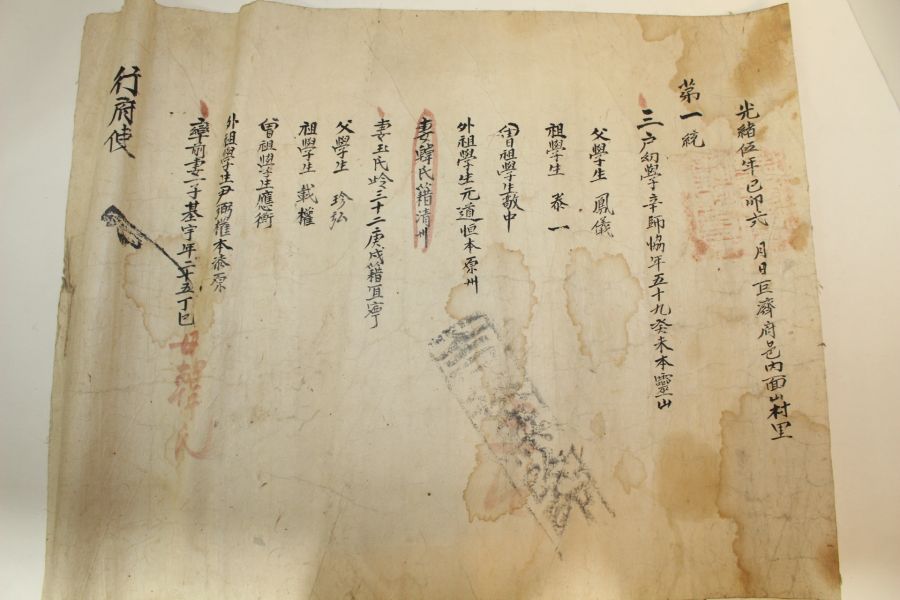 光緖伍年己卯六 月日巨濟府邑內面山村里
第一統
三戶幼學辛師恊年五十九癸未本靈山
父學生 鳳儀
祖學生 泰一
曾祖學生敬中
外祖學生元道恒本原州
妻韓氏籍淸州
妻玉氏岭三十二庚戌籍宜寧
父學生 珍弘
祖學生 載權
曾祖學生應衡
外祖學生尹弼權本漆原
率前妻一子基宇年二十五丁巳
母韓氏
行府使